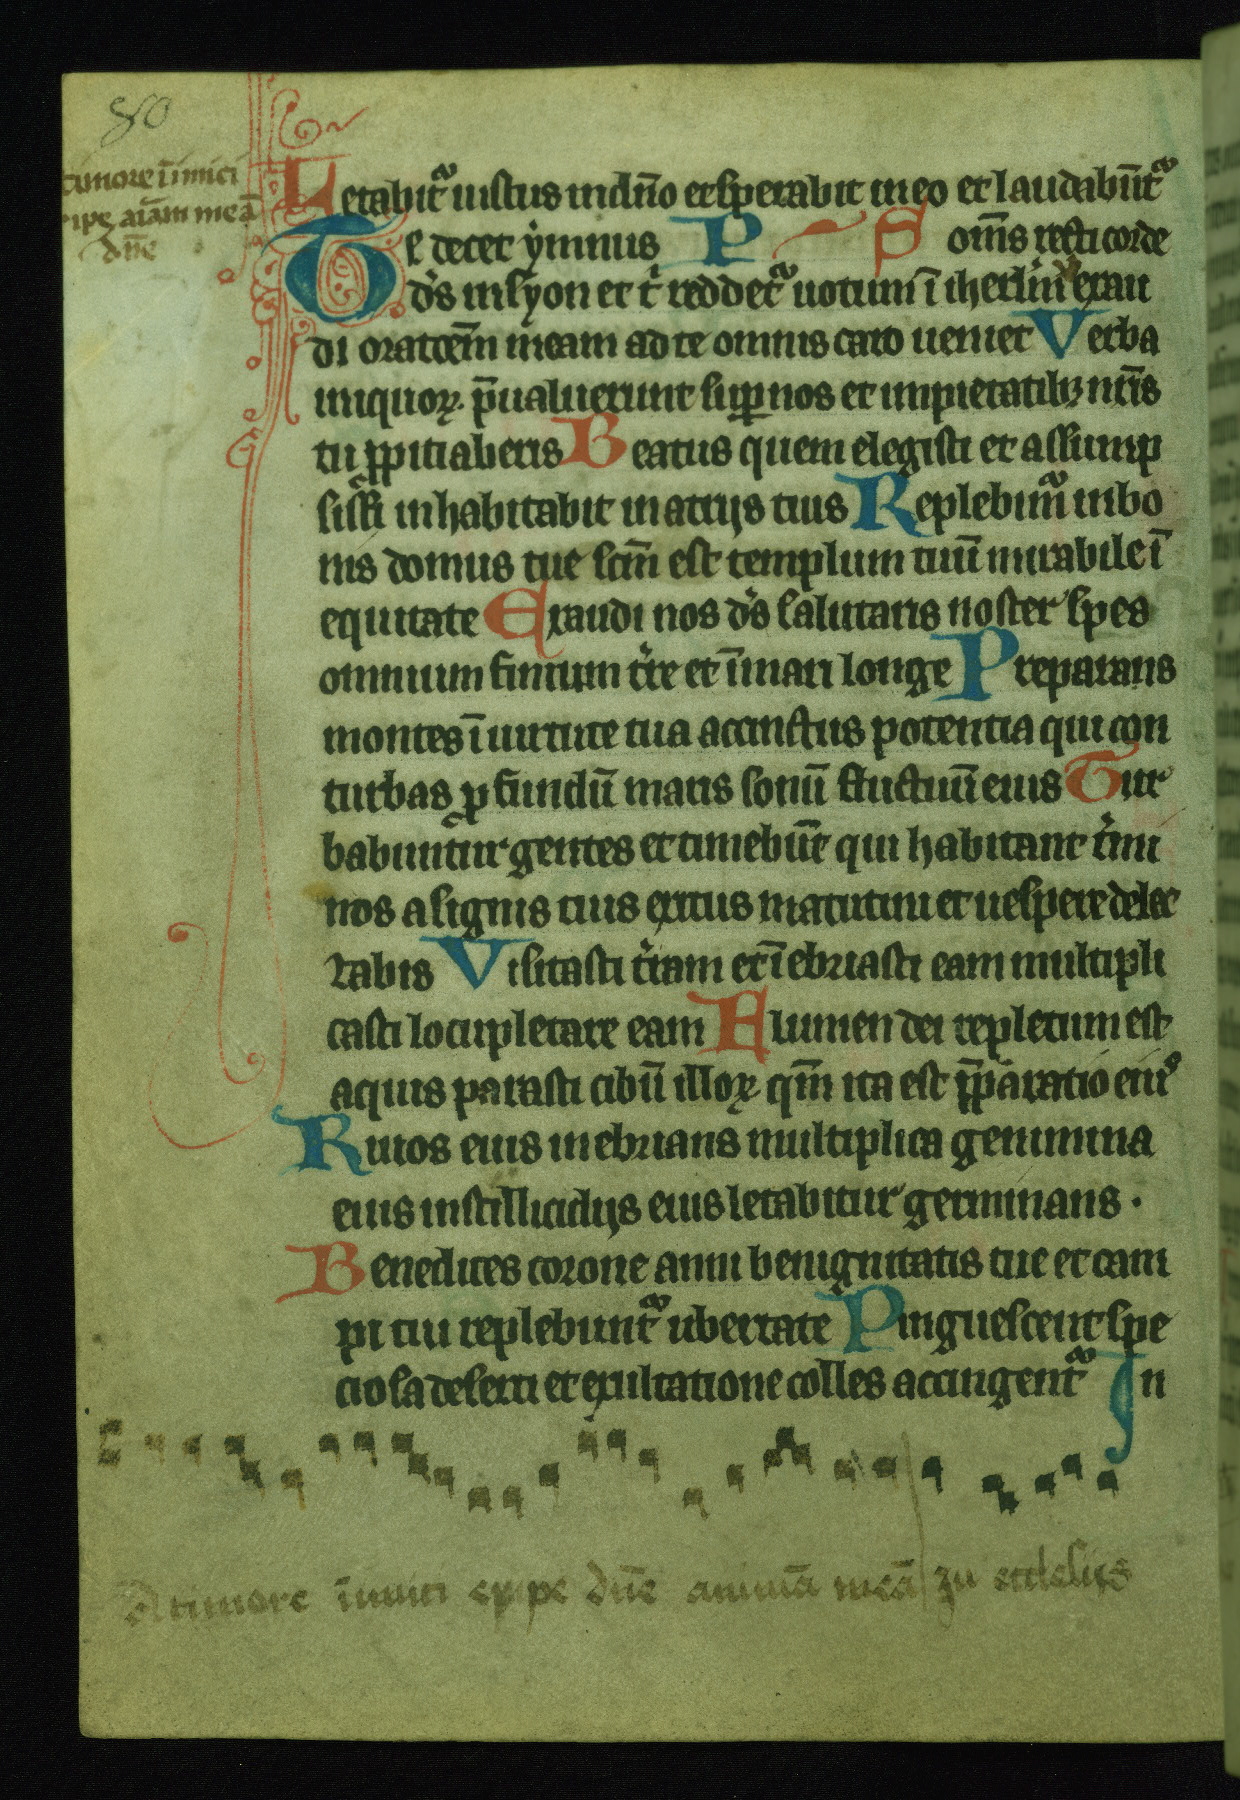 80
timore inimici
ripe aīam meā
dn̄e
Letabit᷒ iustus in dn̄o et sperabit in eo et laudabūt᷒
Te decet ymnus P S om̄s recti corde
ds̄ in syon et t̄ reddet᷒ uotum ī ih̄erlm̄ exau
di orat̄oem̄ meam ad te omnis caro ueniet Verba
iniquoꝝ p̄ualuerunt suꝑ nos et impietatibꝫ nr̄is
tu ꝓpitiaberis Beatus quem elegisti et assump
sisti inhabitabit in atrijs tuis Replebim᷒ in bo
nis domus tue scm̄ est templum tuū mirabile ī
equitate Exaudi nos ds̄ salutaris noster spes
omnium finium t̄re et ī mari longe Preparans
montes ī uirtute tua accinctus potentia qui con
turbas ꝓfundū maris sonū fluctuū eius Tur
babuntur gentes et timebūt qui habitant t̄mi
nos a signis tuis exitus matutini et uespere delec
tabis Visitasti t̄ram et īebriasti eam multipli
casti locupletare eam Flumen dei repletum est
aquis parasti cibū illoꝝ qm̄ ita est p̄paratio eiꝰ
Riuos eius inebrians multiplica genimina
eius in stillicidijs eius letabitur germinans .
Benedices corone anni benignitatis tue et cam
pi tui replebunt᷒ ubertate Pinguescent spe
ciosa deserti et exultatione colles accingent᷒ In
A timore īimici eripe dn̄e animā meā zu ecclesijs